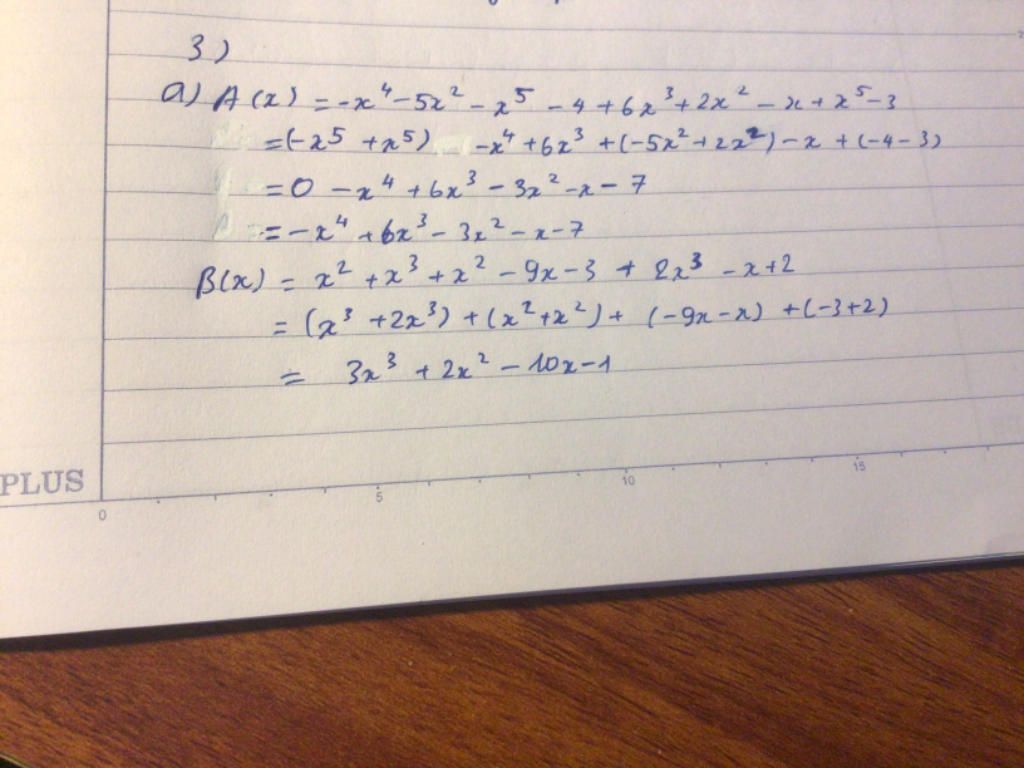 3)
a) A(x) = -x⁴ - 5x² - x⁵ - 4 + 6x³ + 2x² - x + x⁵ - 3
= (-x⁵ + x⁵) - x⁴ + 6x³ + (-5x² + 2x²) - x + (-4 - 3)
= 0 - x⁴ + 6x³ - 3x² - x - 7
= -x⁴ + 6x³ - 3x² - x - 7
B(x) = x² + x³ + x² - 9x - 3 + 2x³ - x + 2
= (x³ + 2x³) + (x² + x²) + (-9x - x) + (-3 + 2)
= 3x³ + 2x² - 10x - 1
PLUS
0 5 10 15